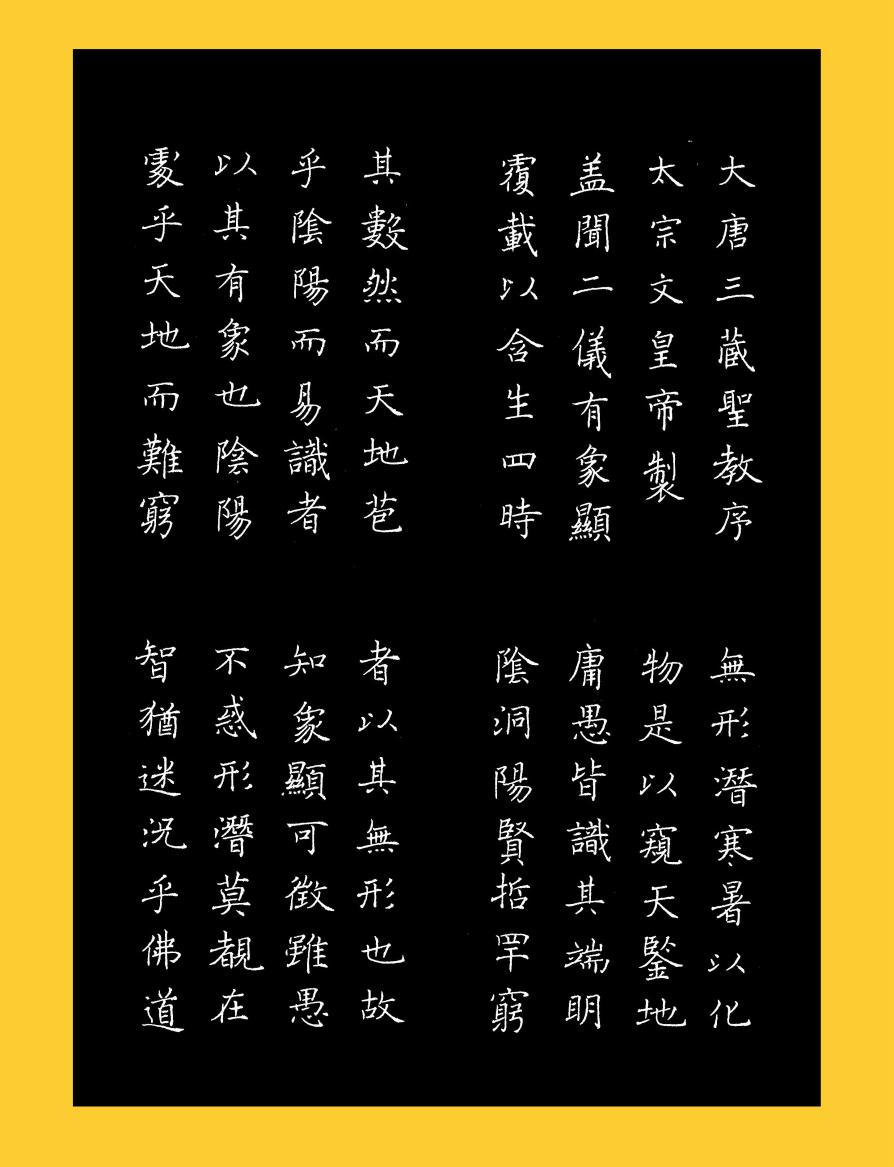 大唐三藏聖教序
太宗文皇帝製
盖聞二儀有象顯
覆載以含生四時
無形潛寒暑以化
物是以窺天鑒地
庸愚皆識其端明
陰洞陽賢哲罕窮
其數然而天地苞
乎陰陽而易識者
以其有象也陰陽
處乎天地而難窮
者以其無形也故
知象顯可徵雖愚
不惑形潛莫覩在
智猶迷況乎佛道